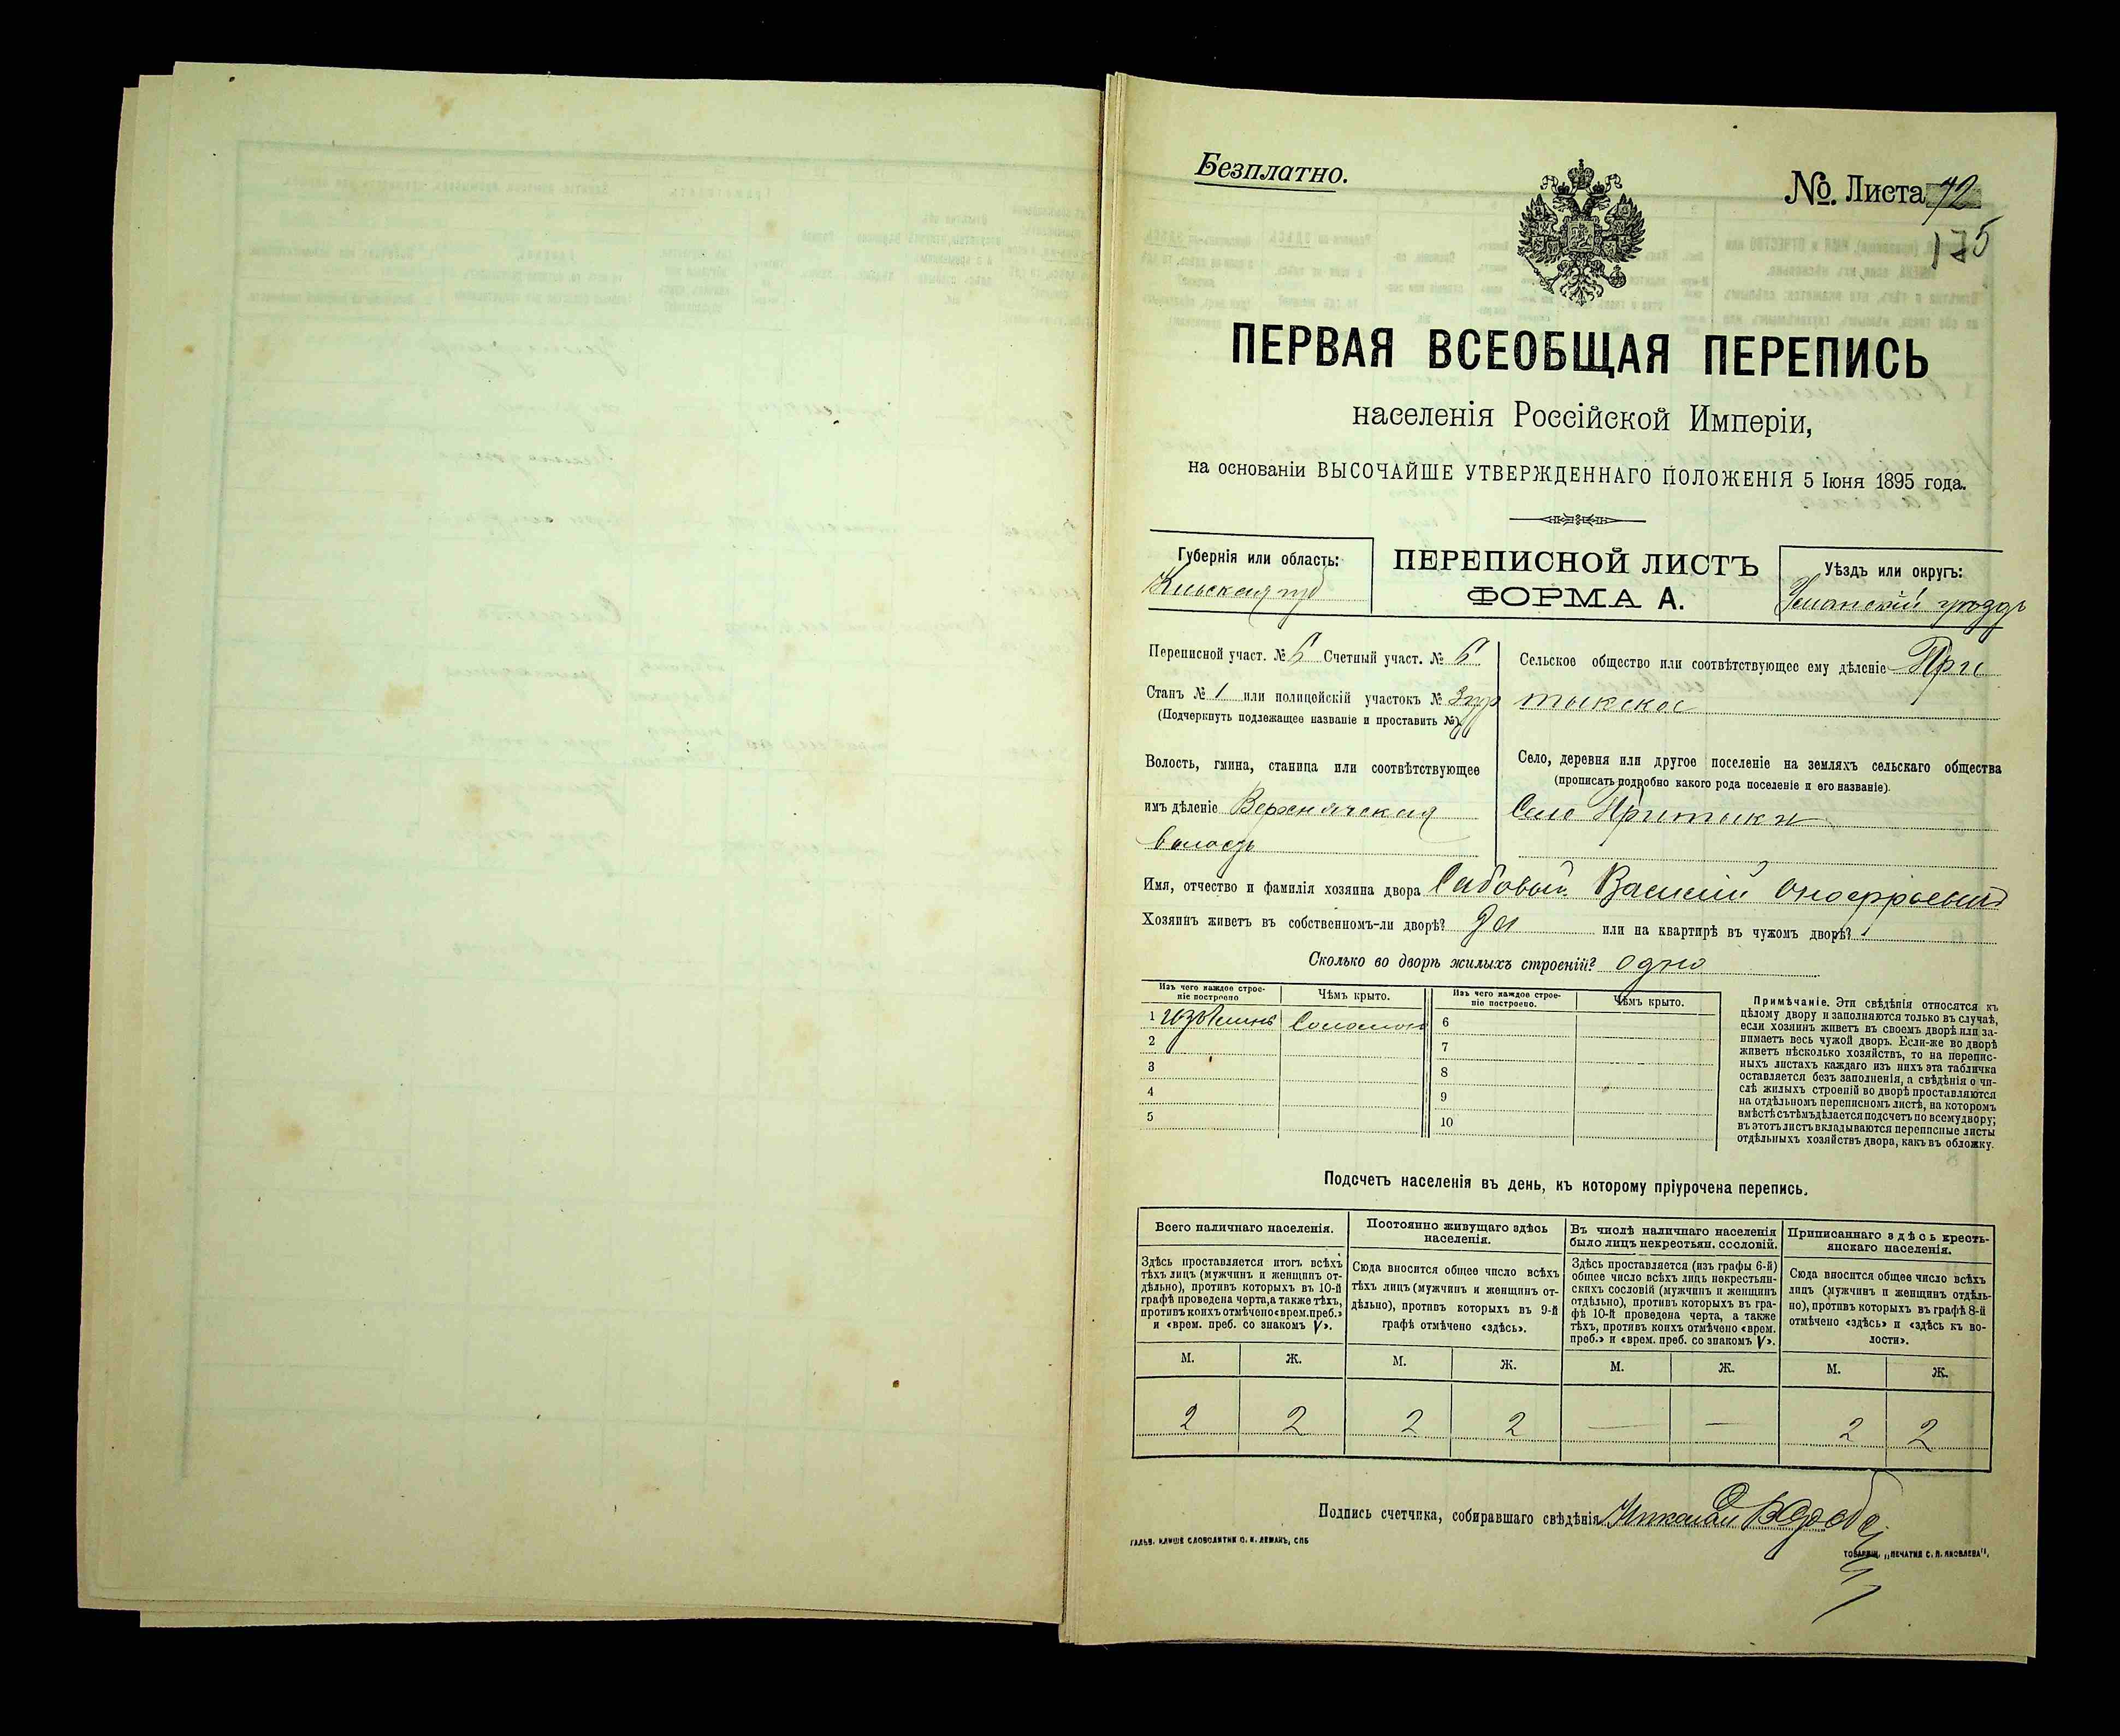 Безплатно.
№. Листа 72
175
ПЕРВАЯ ВСЕОБЩАЯ ПЕРЕПИСЬ
населенія Россійской Имперіи,
на основаніи ВЫСОЧАЙШЕ УТВЕРЖДЕННАГО ПОЛОЖЕНІЯ 5 Іюня 1895 года.
Губернія или область:
Кіевская губ
ПЕРЕПИСНОЙ ЛИСТЪ
ФОРМА А.
Уѣздъ или округъ:
Уманскій уѣздъ
Переписной участ. № 6 Счетный участ. № 6
Станъ № 1 или полицейскій участокъ №
(Подчеркнуть подлежащее названіе и проставить №).
Волость, гмина, станица или соотвѣтствующее
имъ дѣленіе Верхнячская
волость
Сельское общество или соотвѣтствующее ему дѣленіе При
тыкское
Село, деревня или другое поселеніе на земляхъ сельскаго общества
(прописать подробно какого рода поселеніе и его названіе).
Село Притыки
Имя, отчество и фамилія хозяина двора Садовый Василій Оноффріевичъ
Хозяинъ живетъ въ собственномъ-ли дворѣ? да или на квартирѣ въ чужомъ дворѣ?
Сколько во дворѣ жилыхъ строеній? одно
Изъ чего каждое строе-
ніе построено
Чѣмъ крыто.
Изъ чего каждое строе-
ніе построено.
Чѣмъ крыто.
1 изъ глины Соломою 6
2 7
3 8
4 9
5 10
Примѣчаніе. Эти свѣдѣнія относятся къ
цѣлому двору и заполняются только въ случаѣ,
если хозяинъ живетъ въ своемъ дворѣ или за-
нимаетъ весь чужой дворъ. Если-же во дворѣ
живетъ нѣсколько хозяйствъ, то на перепис-
ныхъ листахъ каждаго изъ нихъ эта табличка
оставляется безъ заполненія, а свѣдѣнія о чи-
слѣ жилыхъ строеній во дворѣ проставляются
на отдѣльномъ переписномъ листѣ, на которомъ
вмѣстѣ съ тѣмъ дѣлается подсчетъ по всему двору;
въ этотъ листъ вкладываются переписные листы
отдѣльныхъ хозяйствъ двора, какъ въ обложку.
Подсчетъ населенія въ день, къ которому пріурочена перепись.
Всего наличнаго населенія.
Здѣсь проставляется итогъ всѣхъ
тѣхъ лицъ (мужчинъ и женщинъ от-
дѣльно), противъ которыхъ въ 10-й
графѣ проведена черта, а также тѣхъ,
противъ коихъ отмѣчено «врем. преб.»
и «врем. преб. со знакомъ V».
Постоянно живущаго здѣсь
населенія.
Сюда вносится общее число всѣхъ
тѣхъ лицъ (мужчинъ и женщинъ от-
дѣльно), противъ которыхъ въ 9-й
графѣ отмѣчено «здѣсь».
Въ числѣ наличнаго населенія
было лицъ некрестьян. сословій.
Здѣсь проставляется (изъ графы 6-й)
общее число всѣхъ лицъ некрестьян-
скихъ сословій (мужчинъ и женщинъ
отдѣльно), противъ которыхъ въ гра-
фѣ 10-й проведена черта, а также
тѣхъ, противъ коихъ отмѣчено «врем.
преб.» и «врем. преб. со знакомъ V».
Приписаннаго здѣсь кресть-
янскаго населенія.
Сюда вносится общее число всѣхъ
лицъ (мужчинъ и женщинъ отдѣль-
но), противъ которыхъ въ графѣ 8-й
отмѣчено «здѣсь» и «здѣсь къ во-
лости».
М. Ж. М. Ж. М. Ж. М. Ж.
2 2 2 2 — — 2 2
Подпись счетчика, собиравшаго свѣдѣнія Николай
ГАЛЬВ. КЛИШЕ СЛОВОЛИТНИ О. И. ЛЕМАНЪ, СПБ
ТОВАРИЩ. „ПЕЧАТНЯ С. П. ЯКОВЛЕВА".